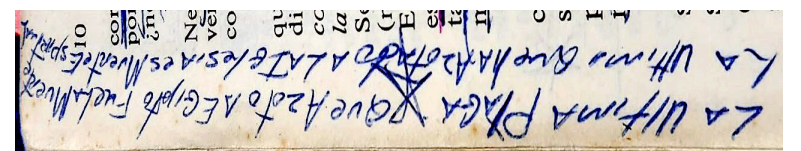 LA UltimA PlAGA Que Azoto A EGipto Fue LA Muerte
LA Ultima Que HA Azotado A LA IGlesiA es Muerte Espiritual
10